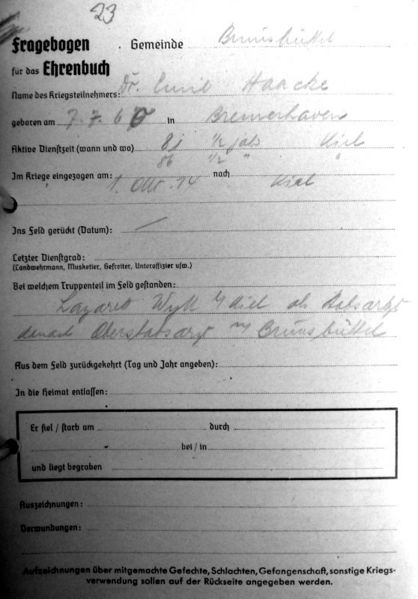 23
Fragebogen Gemeinde Brunsbüttel
für das Ehrenbuch
Name des Kriegsteilnehmers: Dr. Emil Haacke
geboren am 7.7.60 in Bremerhaven
Aktive Dienstzeit (wann und wo) 81 1/2 jahr Kiel
86 1/2 " "
Im Kriege eingezogen am: 1. Okt. 14 nach Kiel
Ins Feld gerückt (Datum): —
Letzter Dienstgrad:
(Landwehrmann, Musketier, Gefreiter, Unteroffizier usw.)
Bei welchem Truppenteil im Feld gestanden:
Lazarett Wyk Kiel als
danach Oberstabsarzt in Brunsbüttel
Aus dem Feld zurückgekehrt (Tag und Jahr angeben):
In die Heimat entlassen:
Er fiel / starb am durch
bei / in
und liegt begraben
Auszeichnungen:
Verwundungen:
Aufzeichnungen über mitgemachte Gefechte, Schlachten, Gefangenschaft, sonstige Kriegs-
verwendung sollen auf der Rückseite angegeben werden.